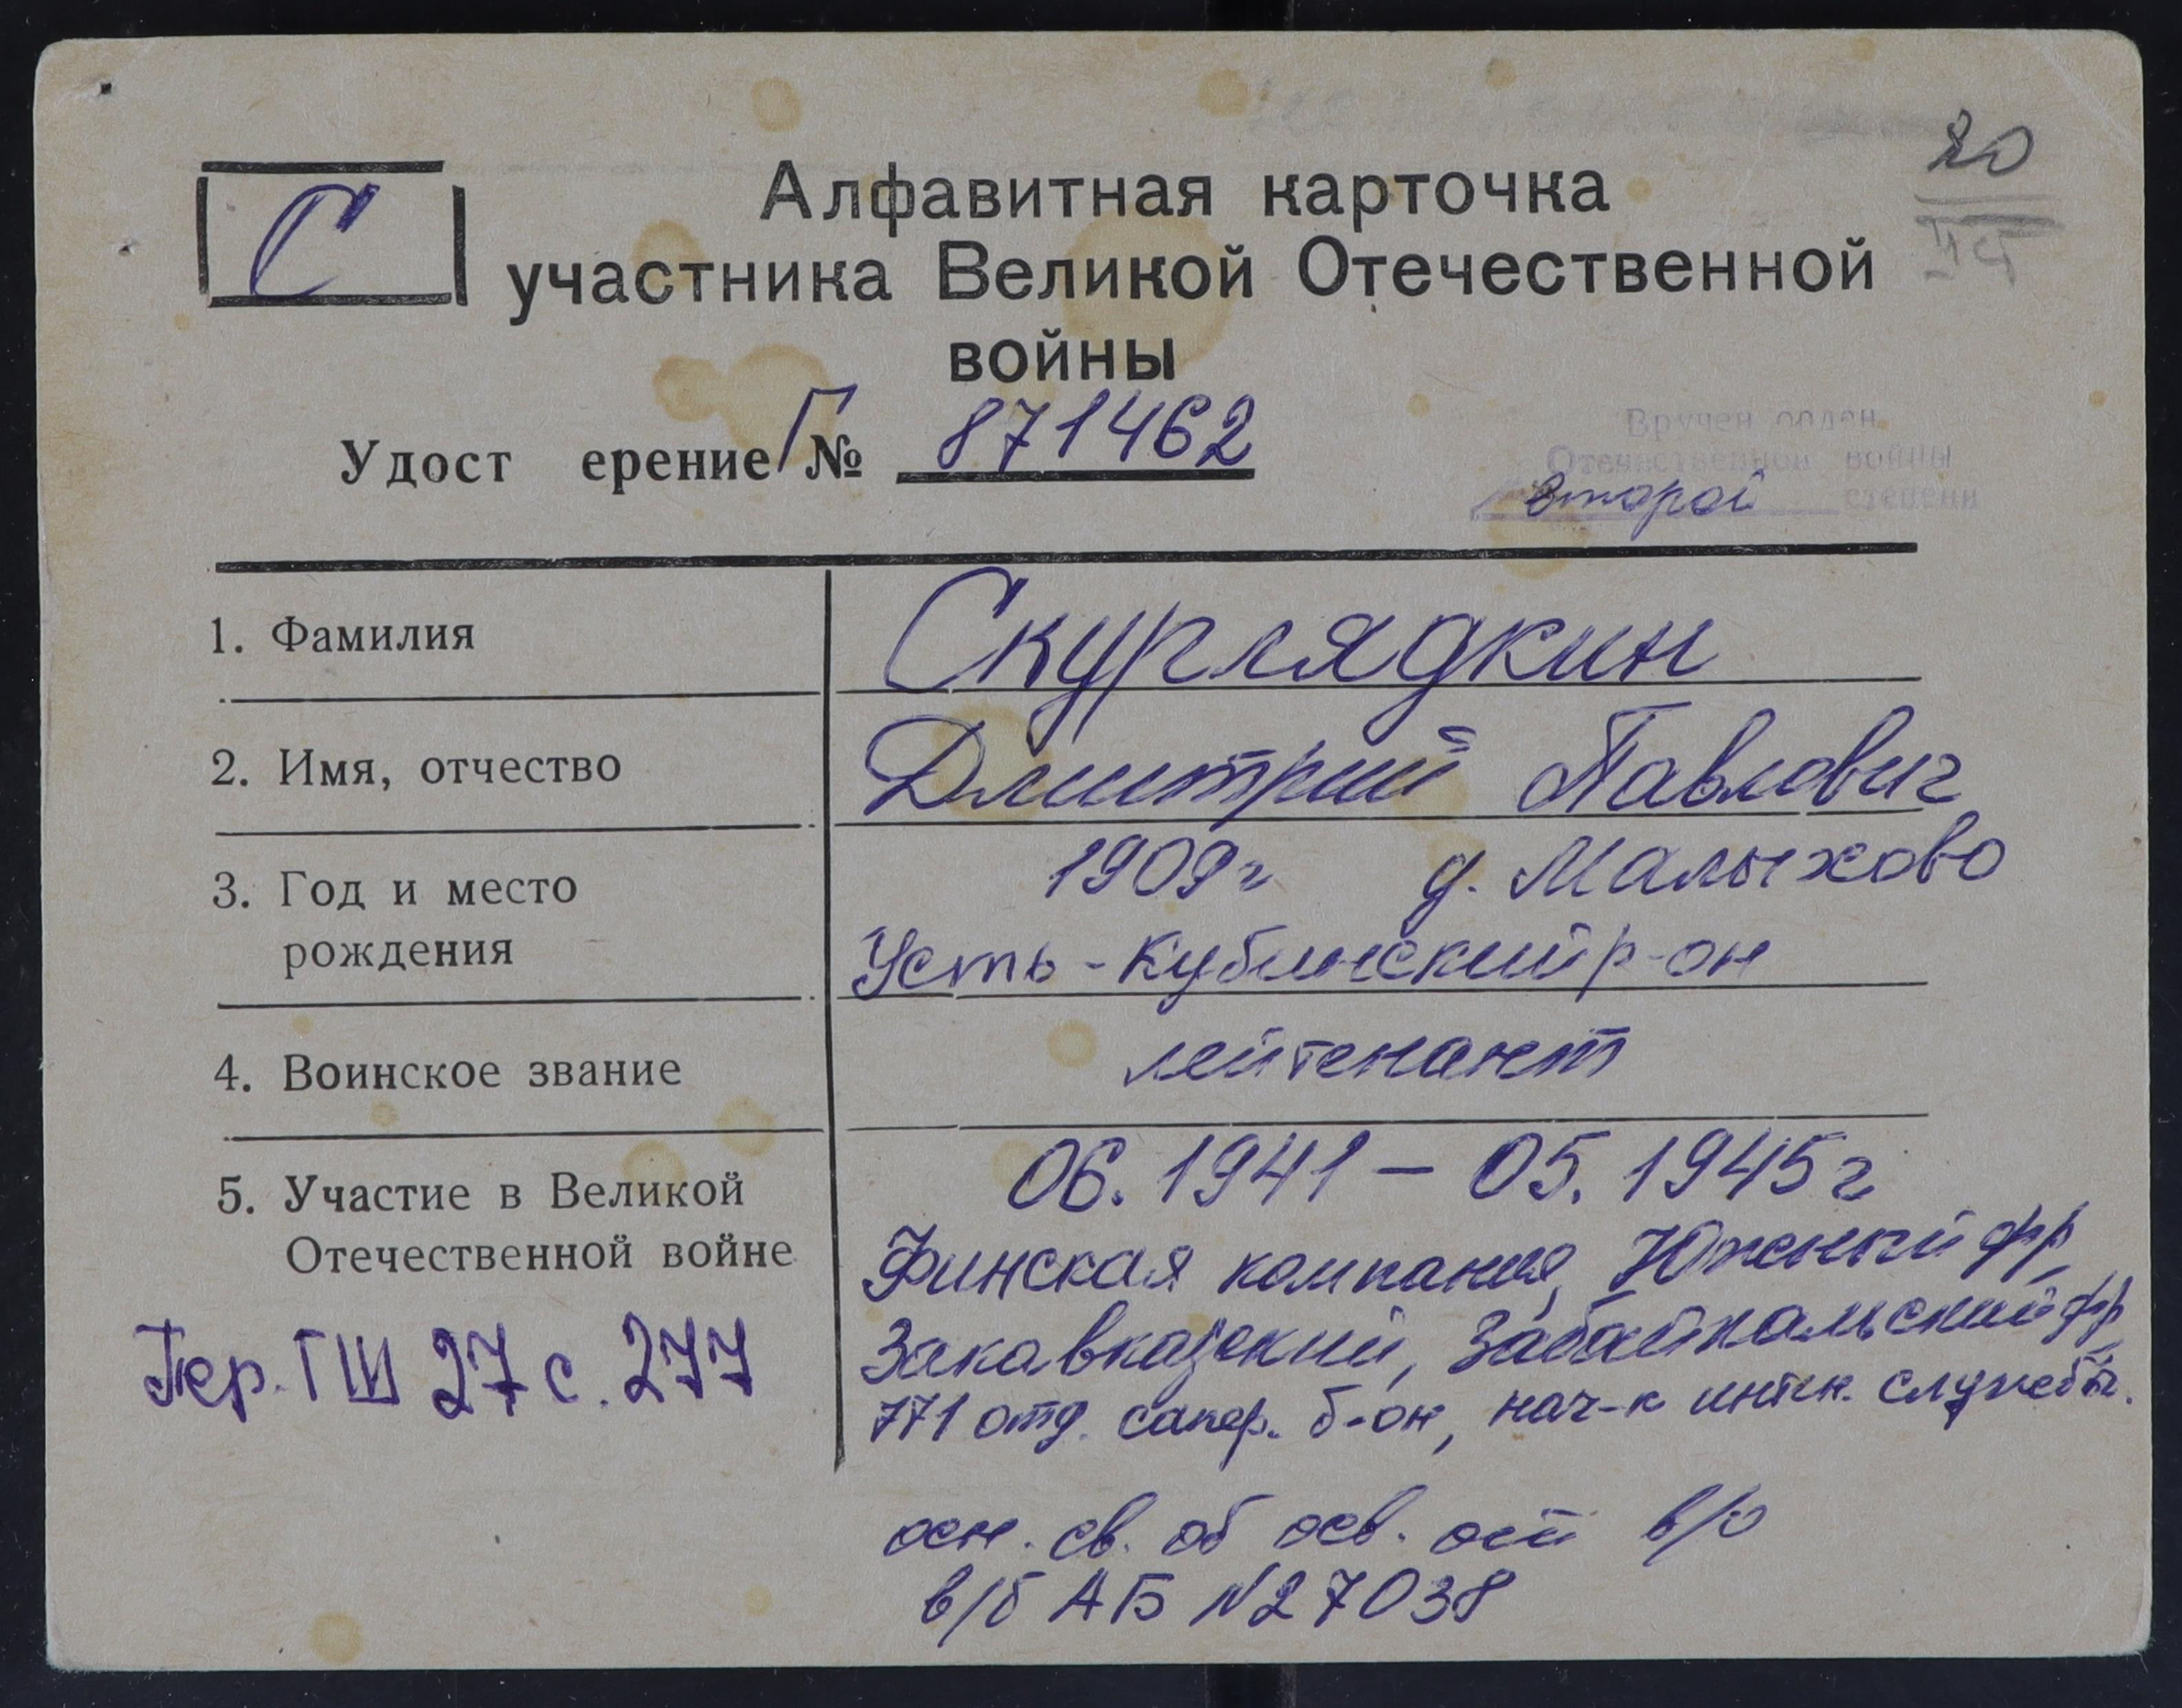 20
С
Алфавитная карточка
участника Великой Отечественной
войны
Удост ерение Г № 871462
Вручен орден
Отечественной войны
второй степени
1. Фамилия
Скурлядкин
2. Имя, отчество
Дмитрий Павлович
3. Год и место
рождения
1909г д. Малыхово
Усть-Кубинский р-он
4. Воинское звание
лейтенант
5. Участие в Великой
Отечественной войне
06.1941 – 05.1945г
Финская компания, Южный фр,
Закавказский, Забайкальский фр,
771 отд. сапер. б-он, нач-к интен. службы.
Пер. ГШ 27 с. 277
осн. св. об осв. от в/о
в/б АБ N27038